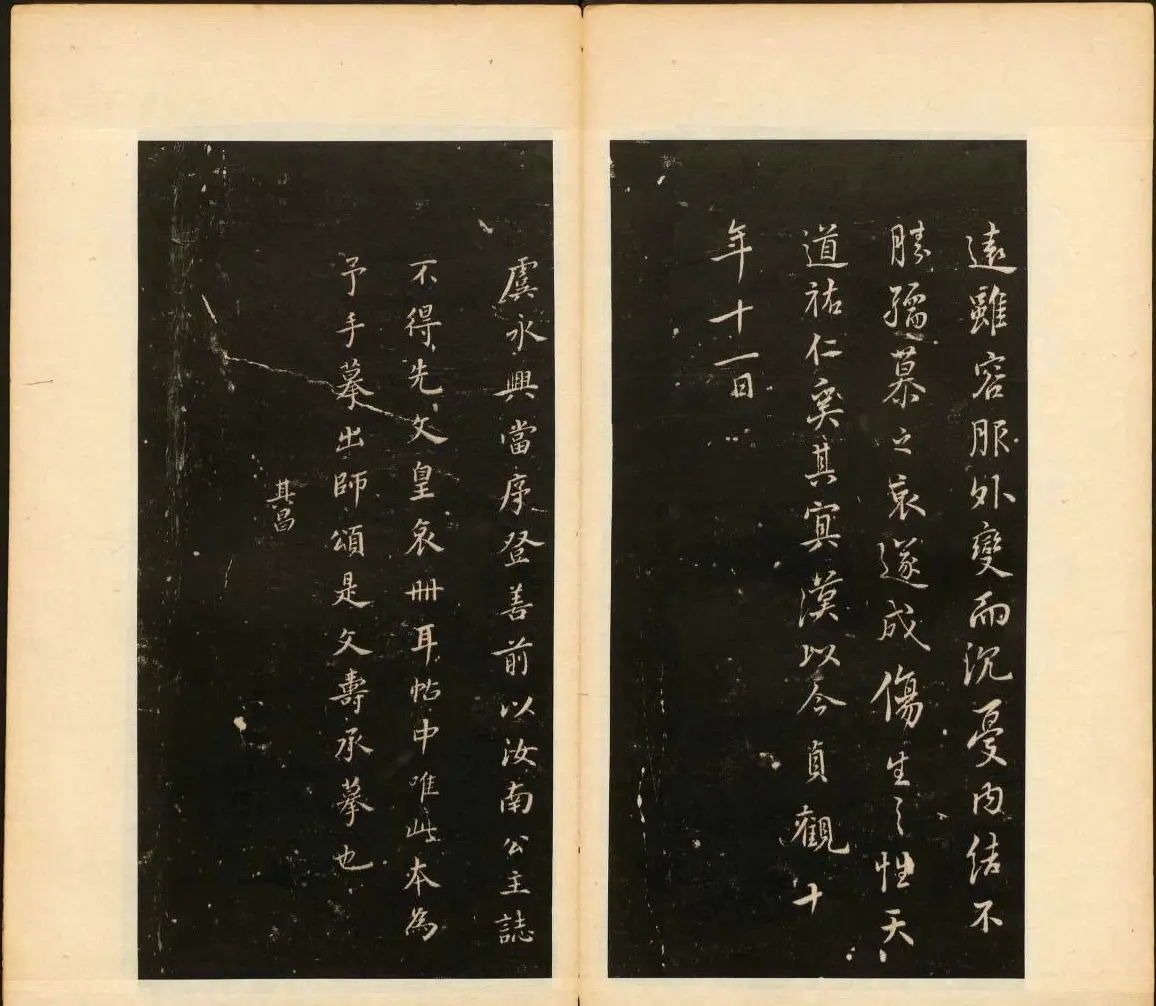 遠雖容服外變而沉憂內結不
勝孺慕之哀遂成傷生之性天
道祐仁奚其冥漠以今貞觀十
年十一日
虞永興當序登善前以汝南公主誌
不得先文皇哀冊耳帖中唯此本為
予手摹出師頌是文壽承摹也
其昌